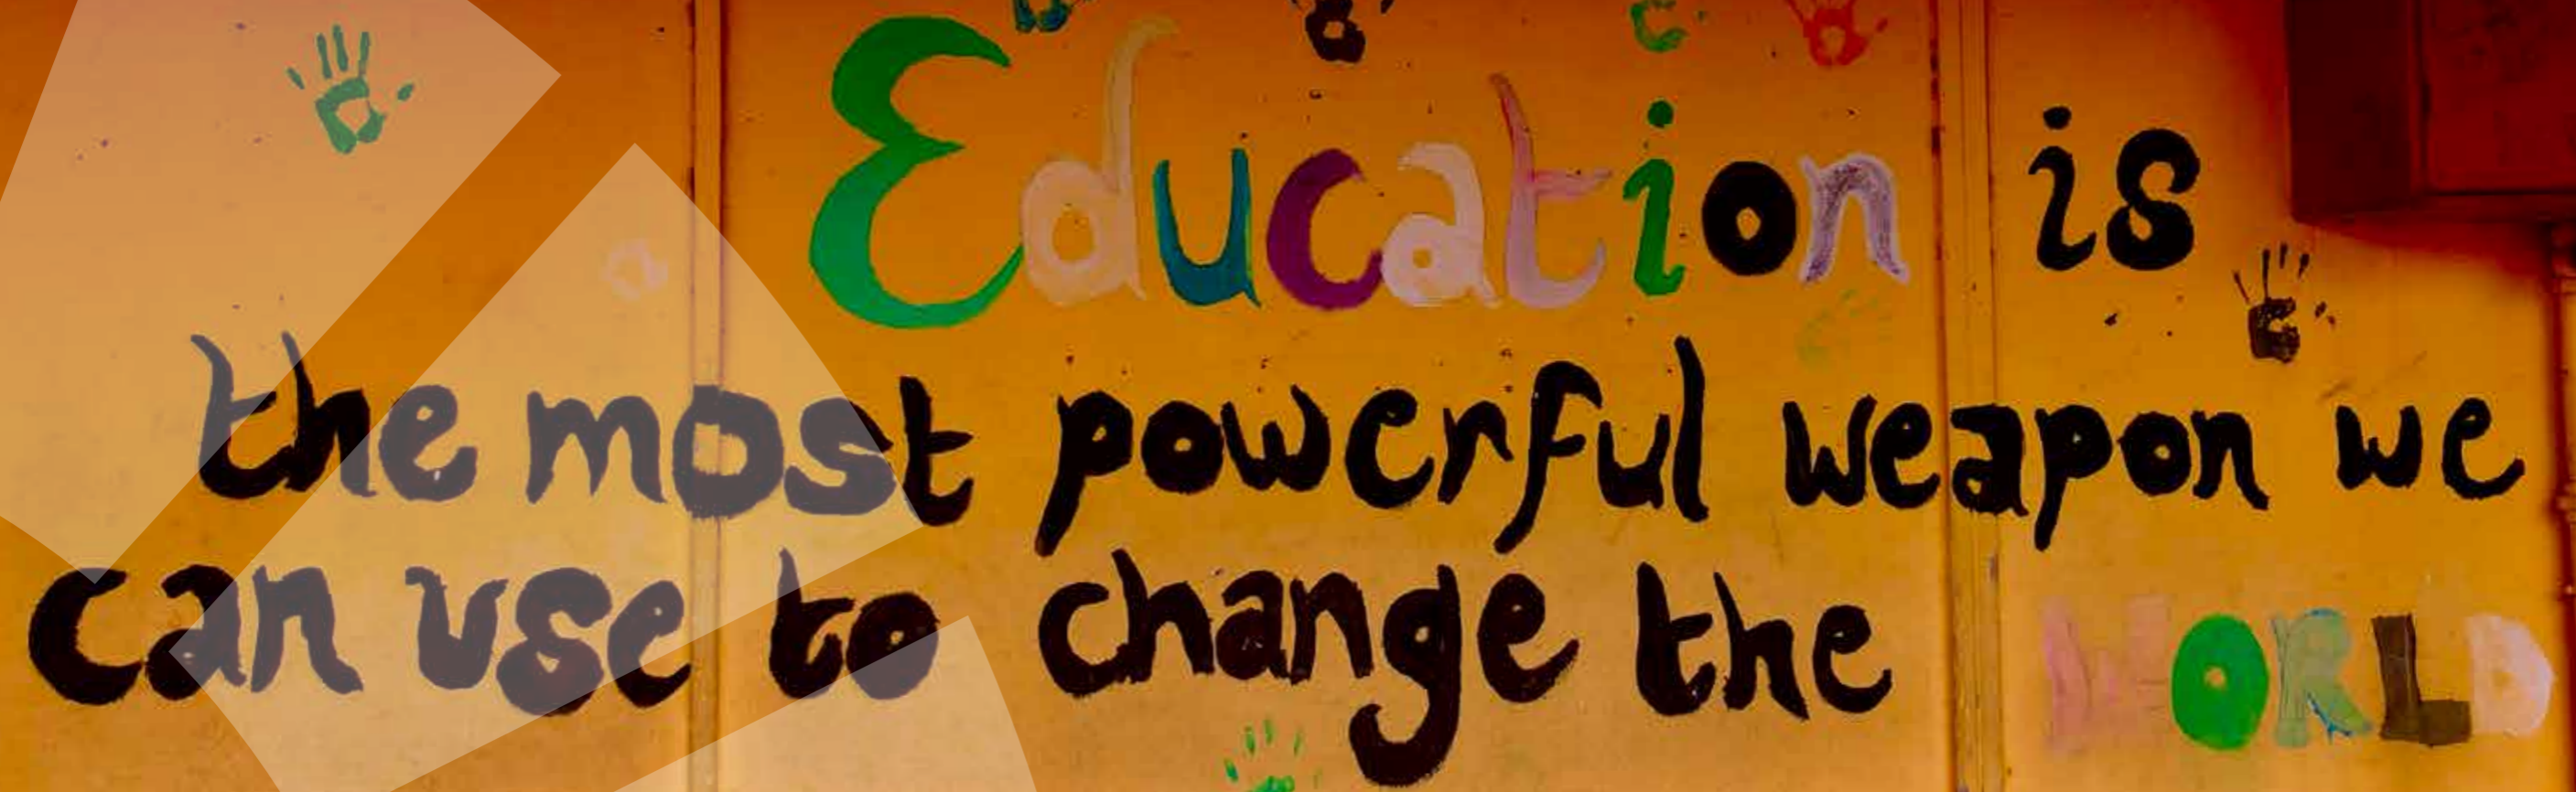 Education is
the most powerful weapon we
can use to change the WORLD